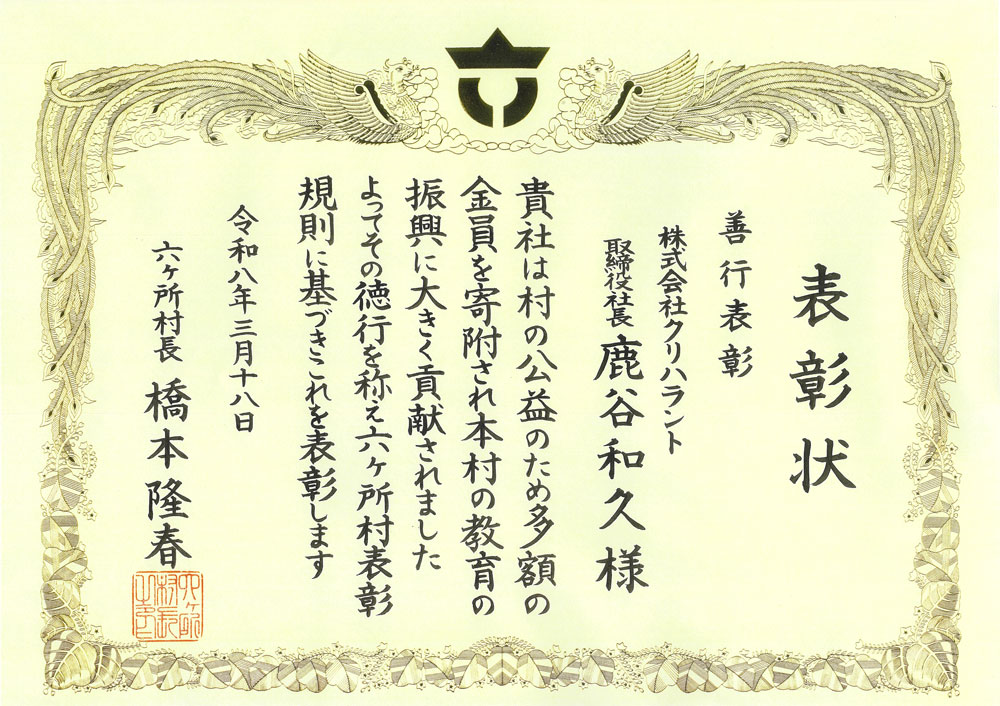 表彰状
善行表彰
株式会社クリハラント
取締役社長 鹿谷和久様
貴社は村の公益のため多額の
金員を寄附され本村の教育の
振興に大きく貢献されました
よってその徳行を称え六ヶ所村表彰
規則に基づきこれを表彰します
令和八年三月十八日
六ヶ所村長 橋本隆春
六ヶ所
村長
之印